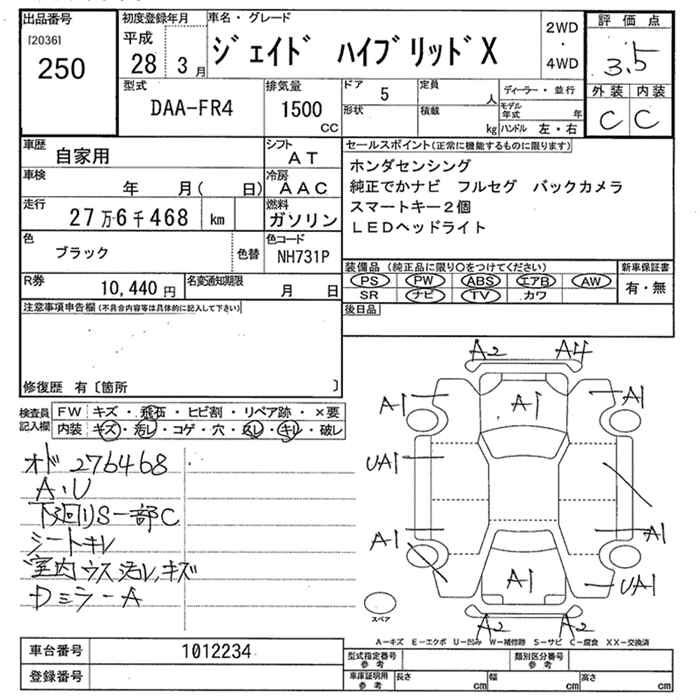 出品番号
[2036]
250
初度登録年月
平成
28 3月
車名・グレード
ジェイド ハイブリッドX
2WD
・
4WD
評価点
3.5
外装 内装
C C
型式
DAA-FR4
排気量
1500
CC
ドア 5
形状
定員 人
積載 kg
ディーラー・並行
モデル年式 年
ハンドル 左・右
車歴
自家用
シフト
AT
車検
年 月( 日)
冷房
AAC
走行
27万6千468 km
燃料
ガソリン
色
ブラック
色替
色コード
NH731P
R券
10,440円
名変通知期限
月 日
セールスポイント(正常に機能するものに限ります)
ホンダセンシング
純正でかナビ フルセグ バックカメラ
スマートキー2個
LEDヘッドライト
装備品(純正品に限り○をつけてください)
PS PW ABS エアB AW
SR ナビ TV カワ
新車保証書
有・無
後日品
注意事項申告欄(不具合内容等は具体的に記入して下さい)
修復歴 有〔箇所 〕
検査員記入欄
FW キズ・飛石・ヒビ割・リペア跡・×要
内装 キズ・汚レ・コゲ・穴・スレ・キレ・破レ
オド 276468
A・U
下廻りS一部C
シートキレ
室内ウス汚レ、キズ
Dミラー A
A2 A4
A1 A1 A1
UA1
A1 A1
A1 UA1
A2 A2
スペア
A-キズ E-エクボ U-凹み W-補修跡 S-サビ C-腐食 XX-交換済
車台番号
1012234
登録番号
型式指定番号
参考
類別区分番号
参考
車庫証明用
参考
長さ cm
幅 cm
高さ cm